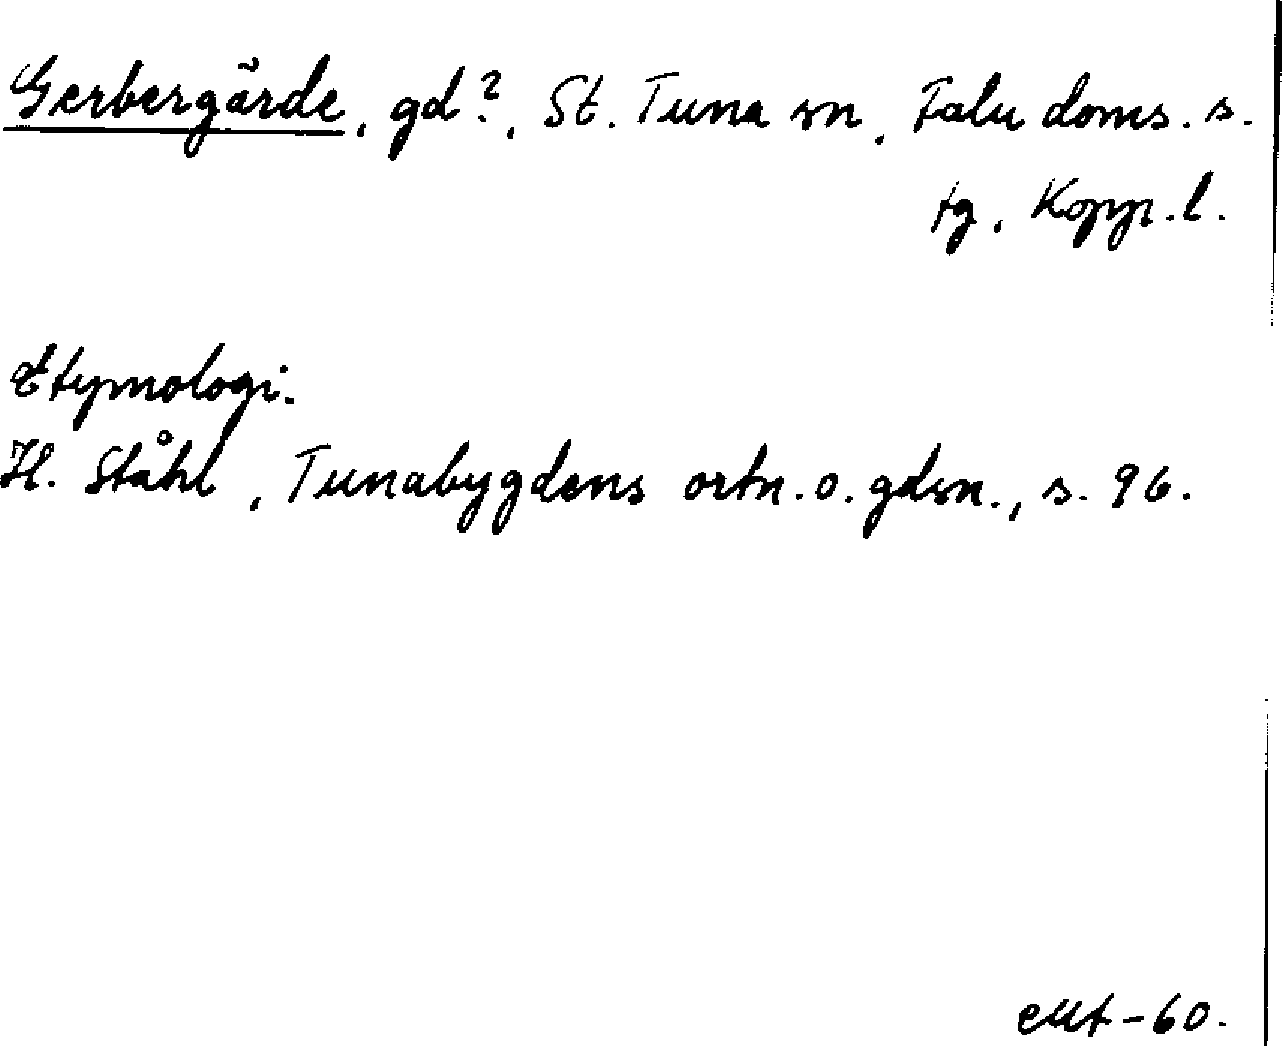 Gerbergärde, gd?, St. Tuna sn, Falu doms. s.
tg, Kopp. l.
Etymologi.
H. Ståhl, Tunabygdens ortn. o. gdsn., s. 96.
-60.